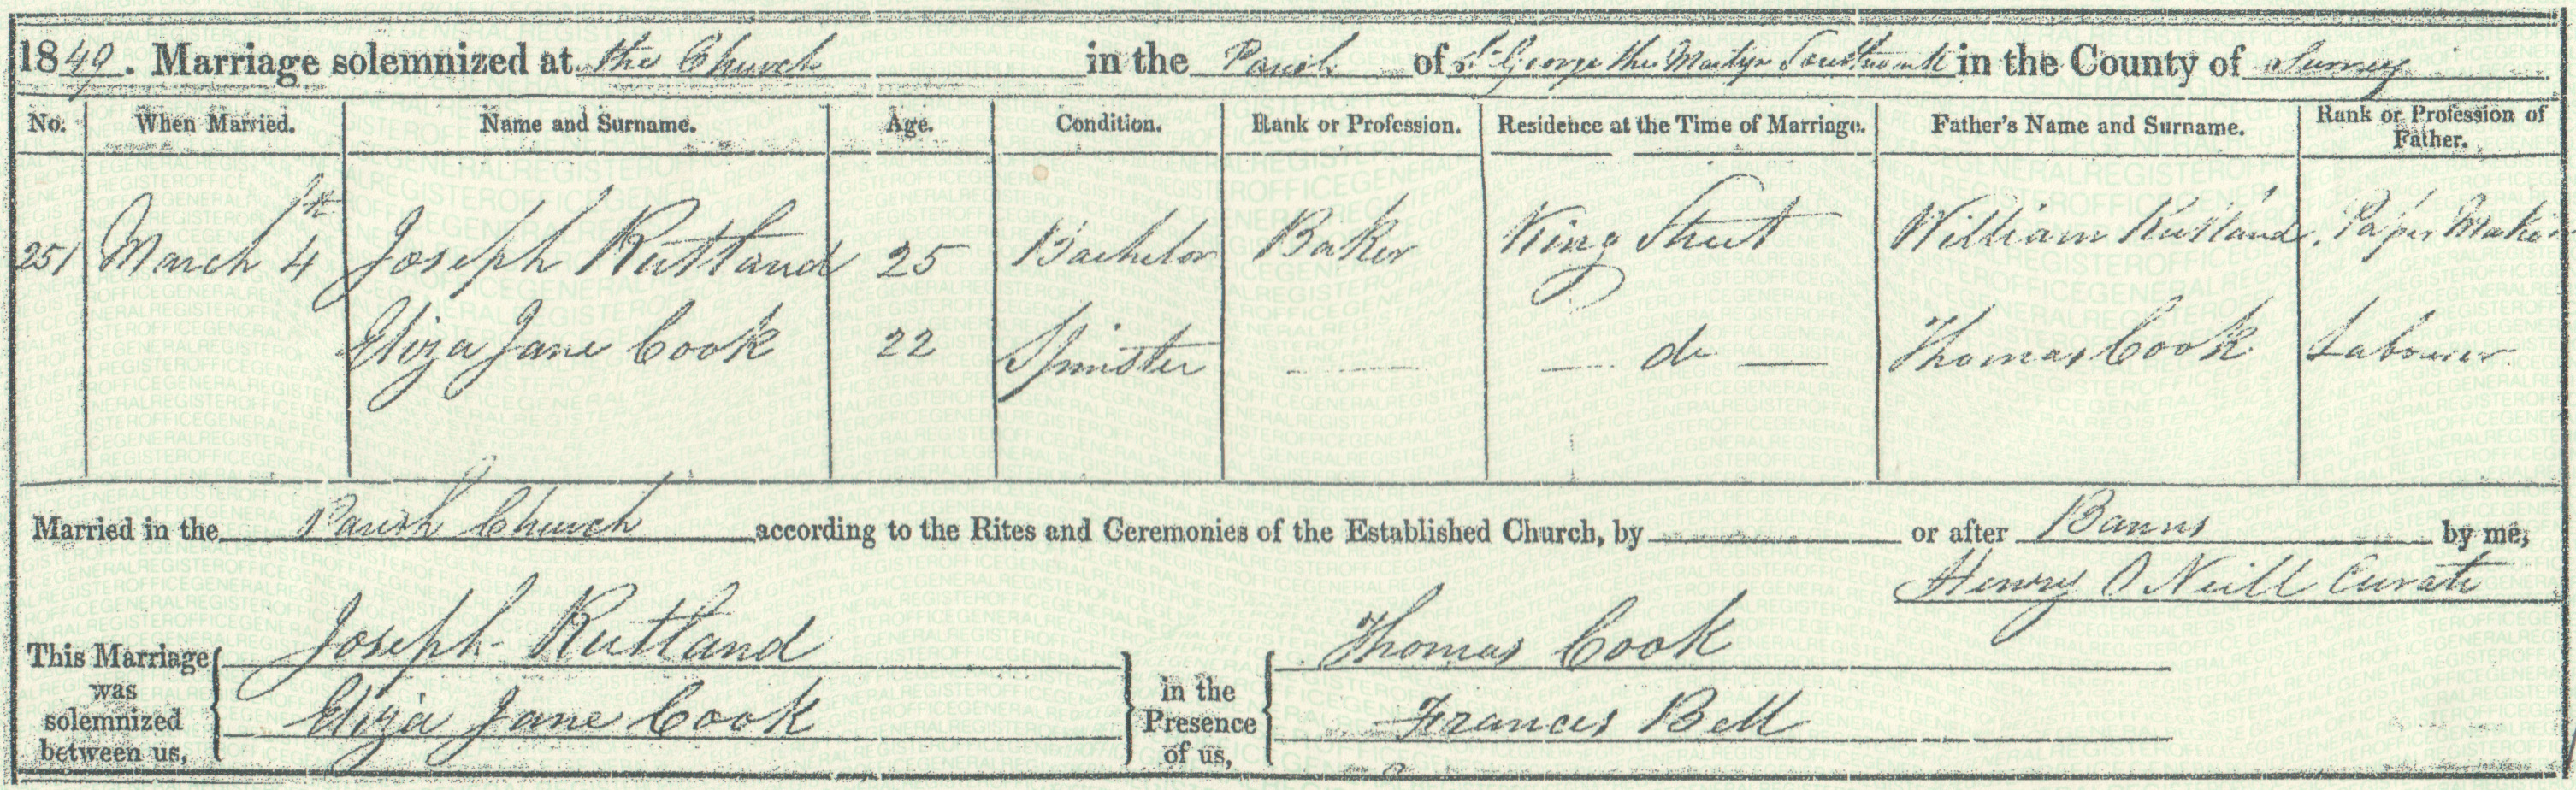 1849. Marriage solemnized at the Church in the Parish of St George the Martyr Southwark in the County of Surrey
No. When Married. Name and Surname. Age. Condition. Rank or Profession. Residence at the Time of Marriage. Father's Name and Surname. Rank or Profession of Father.
251 March 4th Joseph Rutland 25 Bachelor Baker King Street William Rutland Paper Maker
Eliza Jane Cook 22 Spinster — do — Thomas Cook Labourer
Married in the Parish Church according to the Rites and Ceremonies of the Established Church, by or after Banns by me,
Henry O Neill Curate
This Marriage was solemnized between us,
Joseph Rutland
Eliza Jane Cook
in the Presence of us,
Thomas Cook
Frances Bell